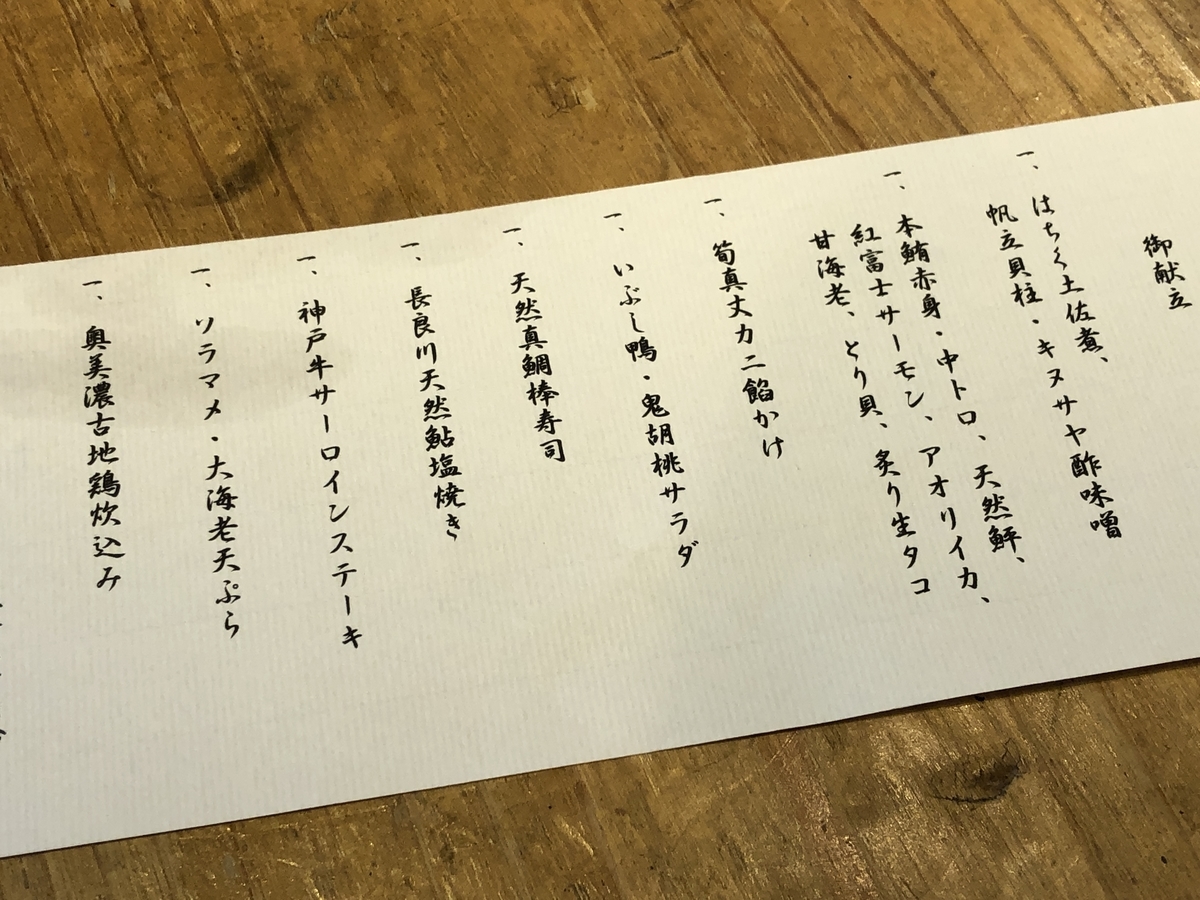 御献立
一、はちく土佐煮、
帆立貝柱・キヌサヤ酢味噌
一、本鮪赤身・中トロ、天然鮃、
紅富士サーモン、アオリイカ、
甘海老、とり貝、炙り生タコ
一、筍真丈カニ餡かけ
一、いぶし鴨・鬼胡桃サラダ
一、天然真鯛棒寿司
一、長良川天然鮎塩焼き
一、神戸牛サーロインステーキ
一、ソラマメ・大海老天ぷら
一、奥美濃古地鶏炊込み